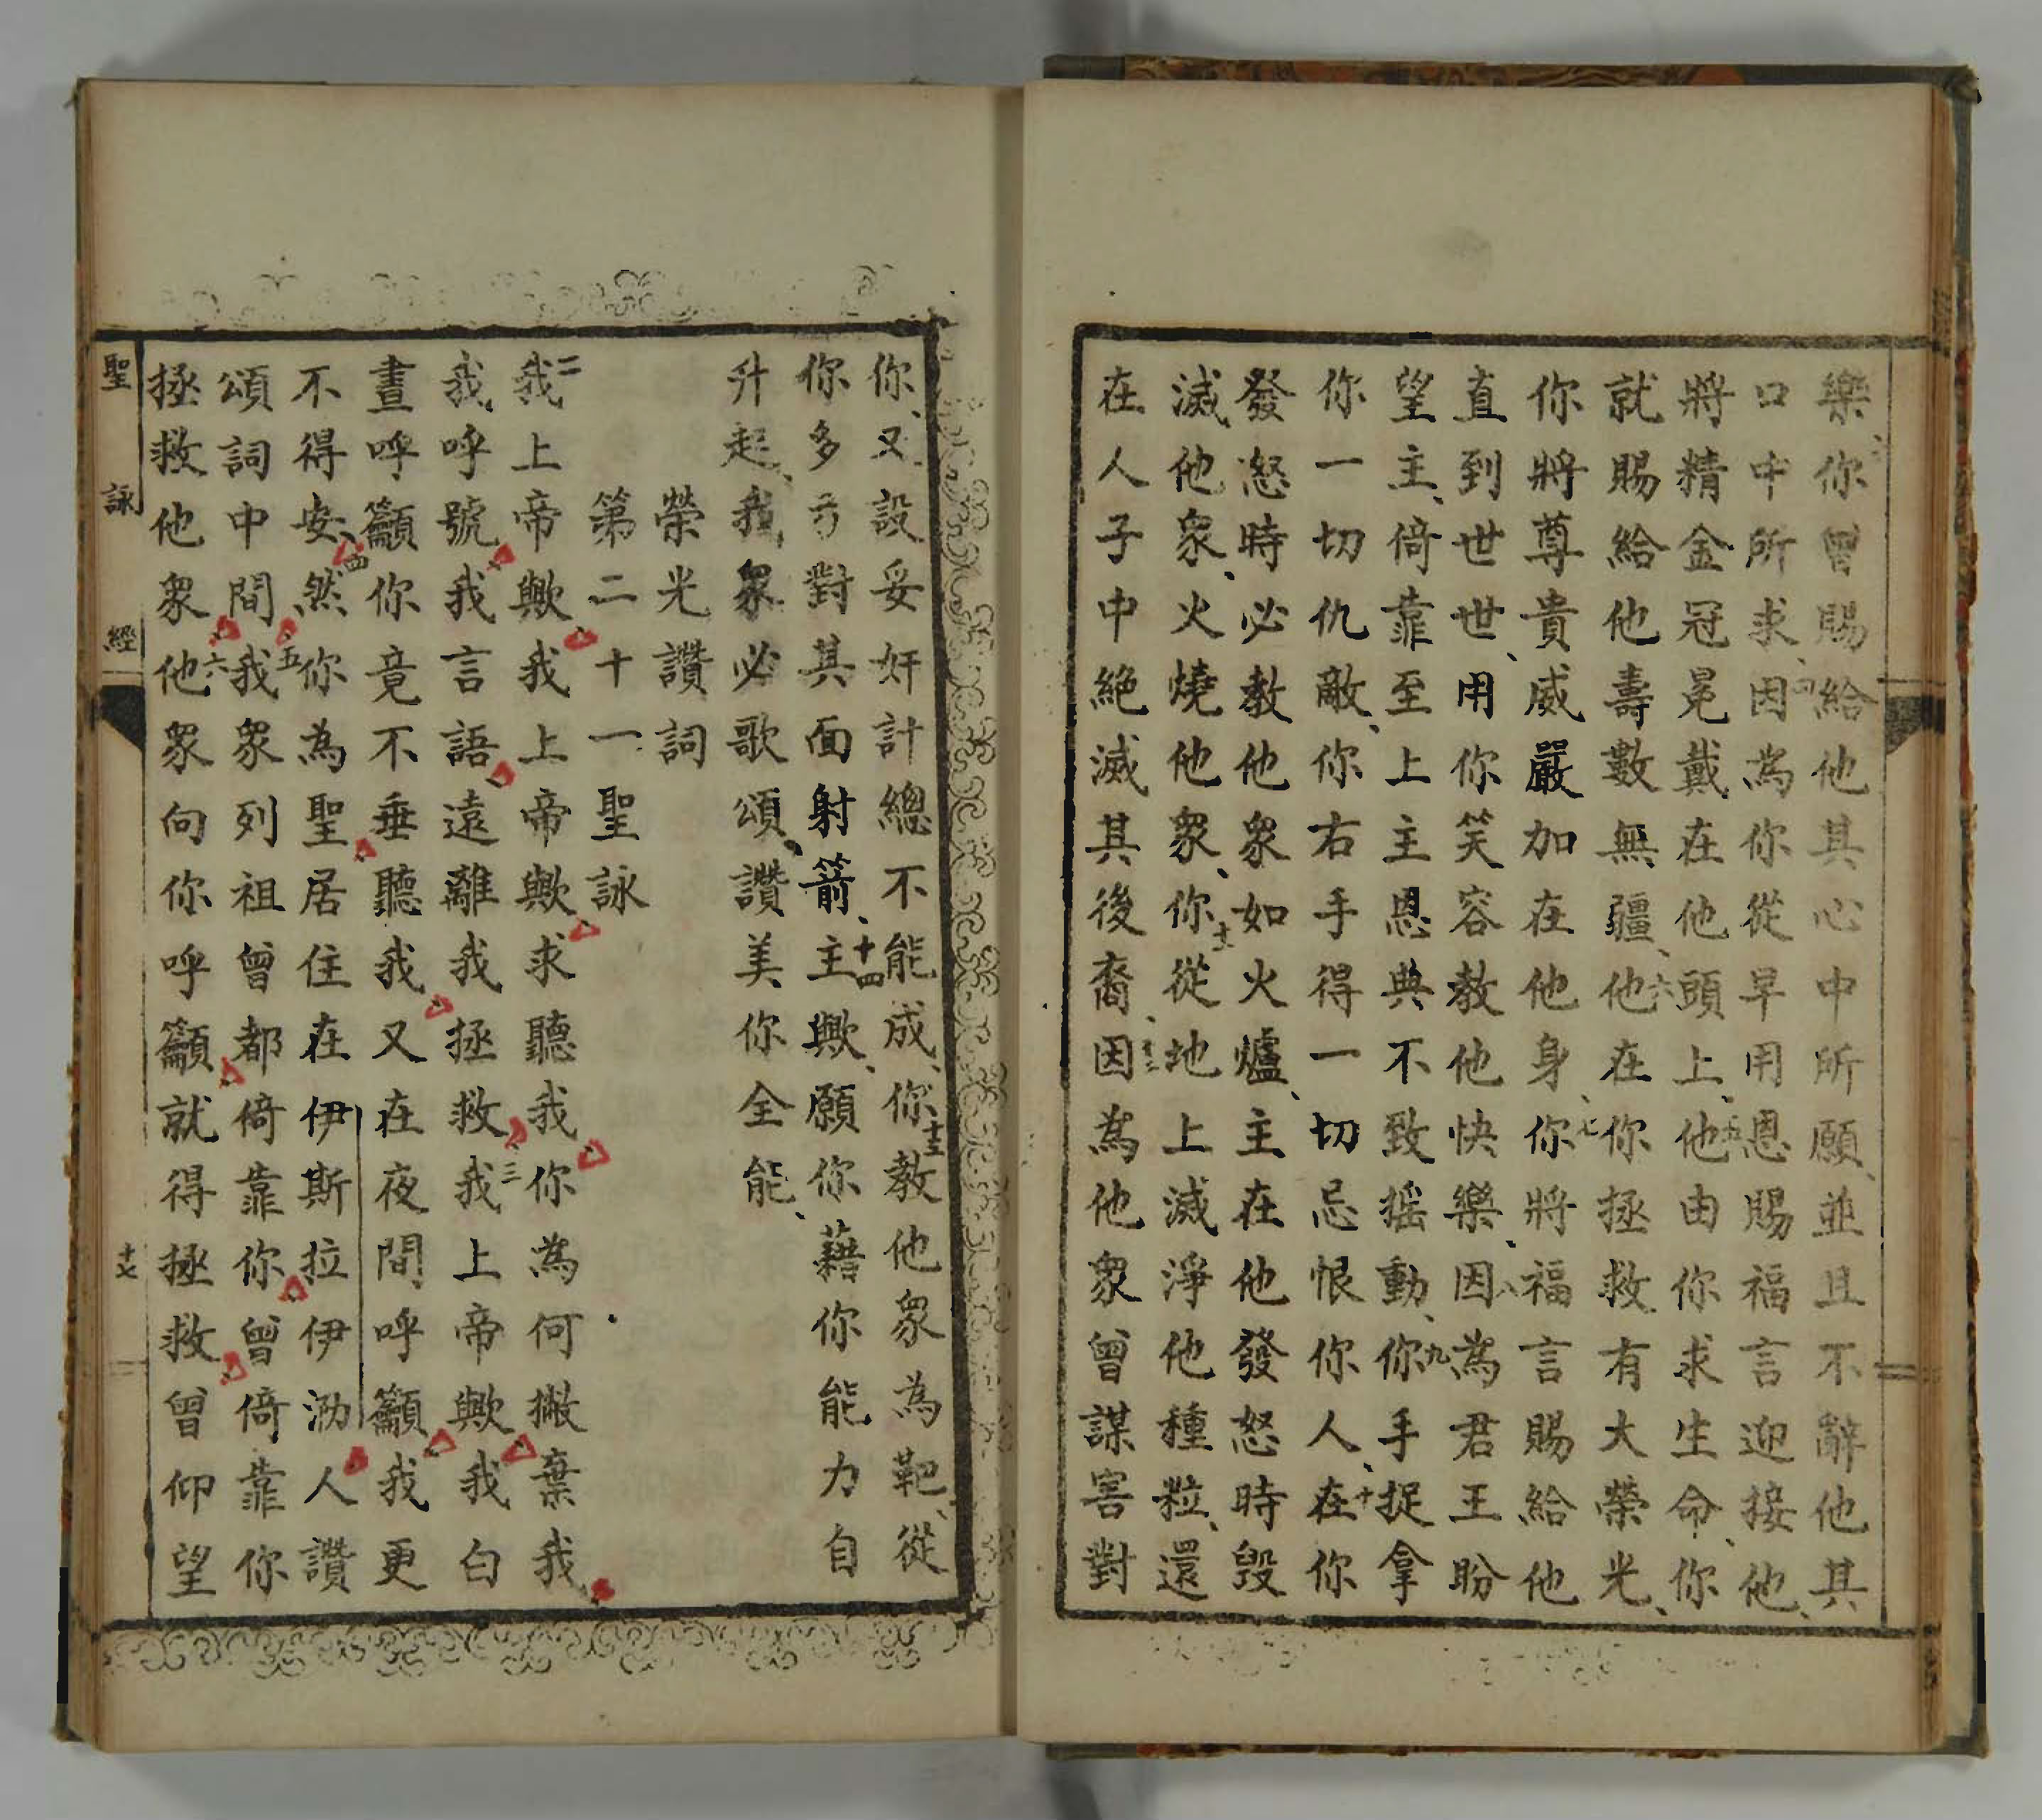 樂、三你曾賜給他其心中所願、並且不辭他其
口中所求、四因為你從早用恩賜福言迎接他、
將精金冠冕戴在他頭上、五他由你求生命、你
就賜給他壽數無疆、六他在你拯救有大榮光、
你將尊貴威嚴加在他身、七你將福言賜給他
直到世世、用你笑容教他快樂、八因為君王盼
望主、倚靠至上主恩典不致搖動、九你手捉拿
你一切仇敵、你右手得一切忌恨你人、十在你
發怒時必教他眾如火爐、主在他發怒時毀
滅他眾、火燒他眾、十一你從地上滅淨他種粒、還
在人子中絕滅其後裔、十二因為他眾曾謀害對
你、又設妥奸計總不能成、十三你教他眾為靶、從
你多弓對其面射箭、十四主歟、願你藉你能力自
升起、我眾必歌頌、讚美你全能、
榮光讚詞
第二十一聖詠
二我上帝歟我上帝歟求聽我你為何撇棄我、
我呼號我言語遠離我拯救三我上帝歟我白
晝呼籲你竟不垂聽我又在夜間呼籲我更
不得安、四然你為聖居住在伊斯拉伊泐人讚
頌詞中間五我眾列祖曾都倚靠你曾倚靠你
拯救他眾六他眾向你呼籲就得拯救曾仰望
聖詠經
十七